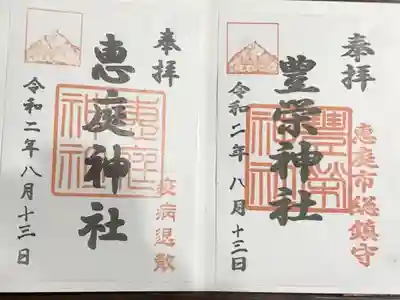 奉拝
豊栄神社
恵庭市総鎮守
豊榮神社
令和二年 八月十三日
奉拝
恵庭神社
疫病退散
恵庭神社
令和二年八月十三日